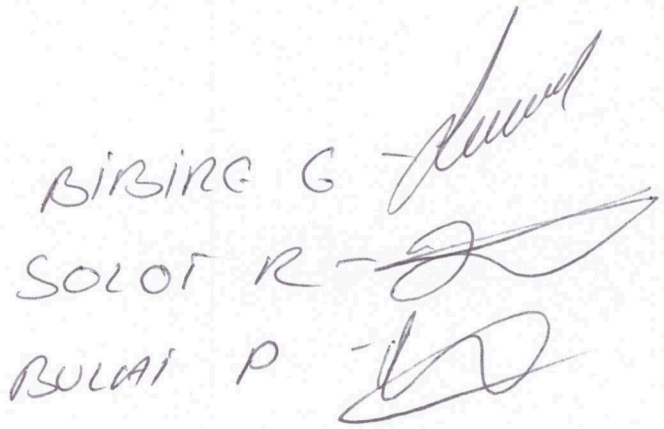 BIBIRE G -
SOLOT R -
BULAI P -